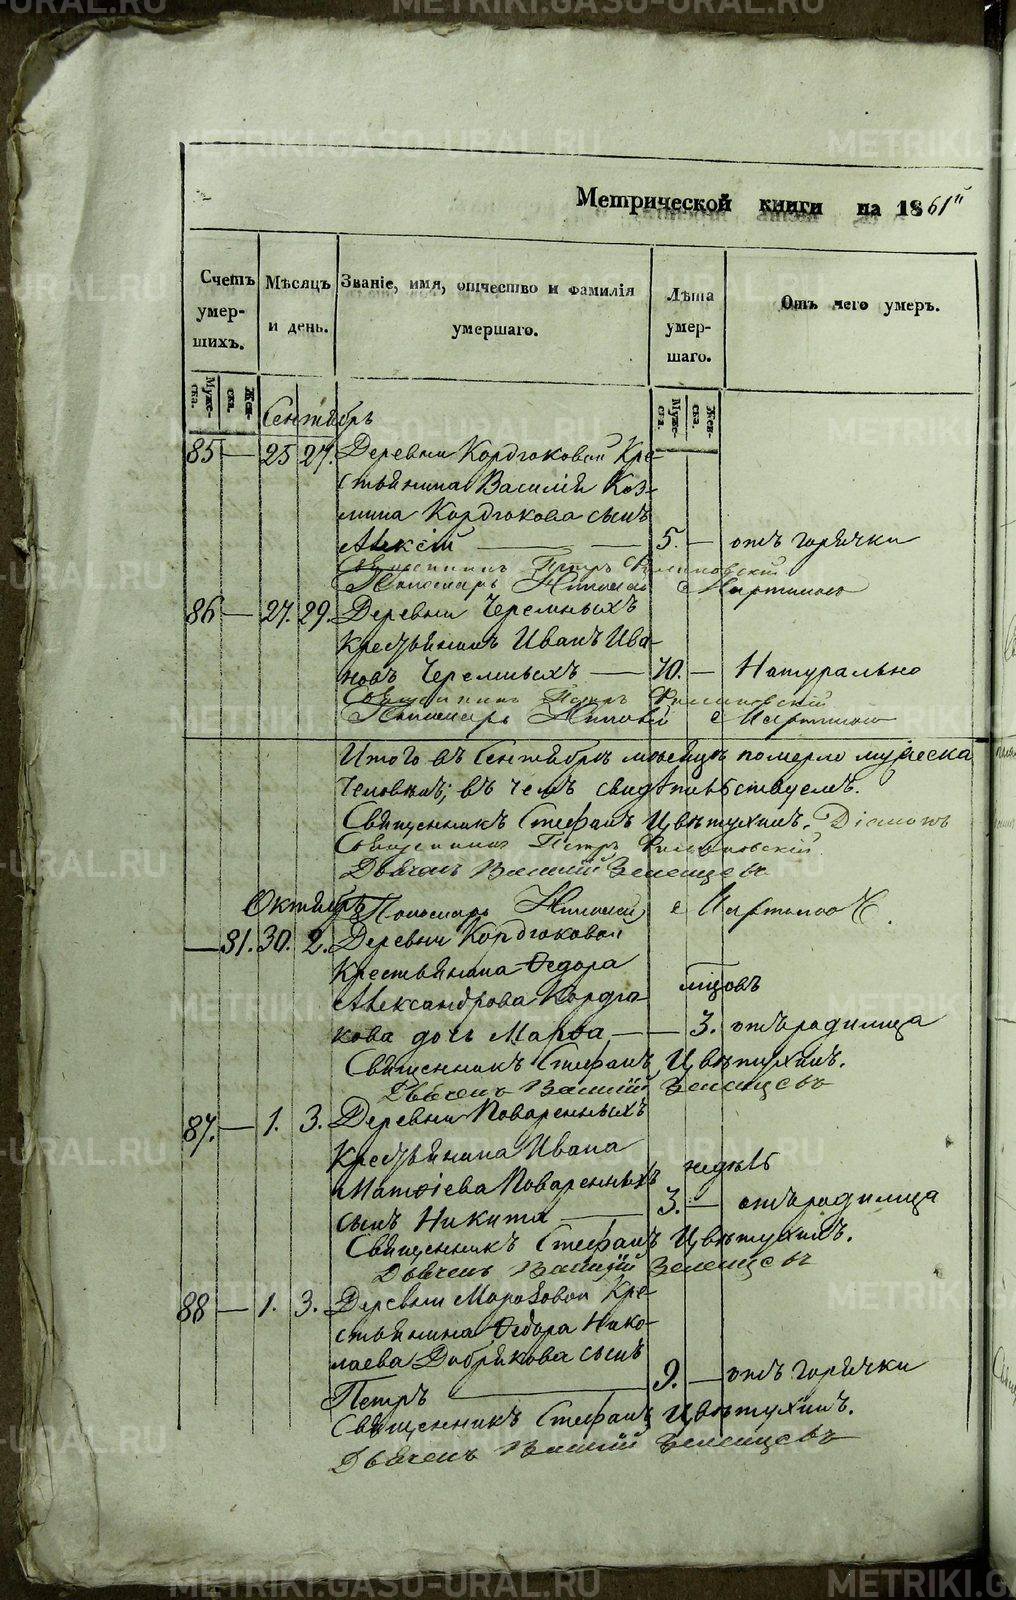 METRIKI.GASO-URAL.RU
Метрической книги на 1861й
Счетъ умер-шихъ.
Мѣсяцъ и день.
Званіе, имя, отчество и фамилія умершаго.
Лѣта умер-шаго.
Отъ чего умеръ.
Муже-ска.
Жен-ска.
Муже-ска.
Жен-ска.
Сентябрь
85 — 25 27. Деревни Кордюковой Кре-
стьянина Василія Коз-
мина Кордюкова сынъ
Алексій — 5. — отъ горячки
Священникъ Петръ
Пономарь Николай
86 — 27. 29. Деревни Черемныхъ
Крестьянинъ Иванъ Ива-
новъ Черемныхъ — 70. — Натурально
Священникъ Петръ
Пономарь Николай
Итого въ Сентябрѣ мѣсяцѣ померло мужеска
человѣкъ; въ чемъ свидѣтельствуемъ.
Священникъ Стефанъ Цвѣтухинъ. Діаконъ
Священникъ Петръ
Дьячекъ Василій Зеленцовъ
Октябрь Пономарь Николай
— 81. 30. 2. Деревни Кордюковой
Крестьянина Ѳедора
Александрова Кордю- мѣсяцовъ
кова дочь Марѳа — 3. отъ родимца
Священникъ Стефанъ Цвѣтухинъ.
Дьячекъ Василій Зеленцовъ
87. — 1. 3. Деревни Поваренныхъ
Крестьянина Ивана
Матѳіева Поваренныхъ недѣль
сынъ Никита — 3. — отъ родимца
Священникъ Стефанъ Цвѣтухинъ.
Дьячекъ Василій Зеленцовъ
88 — 1. 3. Деревни Морозовой Кре-
стьянина Ѳедора Нико-
лаева Добрякова сынъ
Петръ — 9. — отъ горячки
Священникъ Стефанъ Цвѣтухинъ.
Дьячекъ Василій Зеленцовъ
METRIKI.GASO-URAL.RU